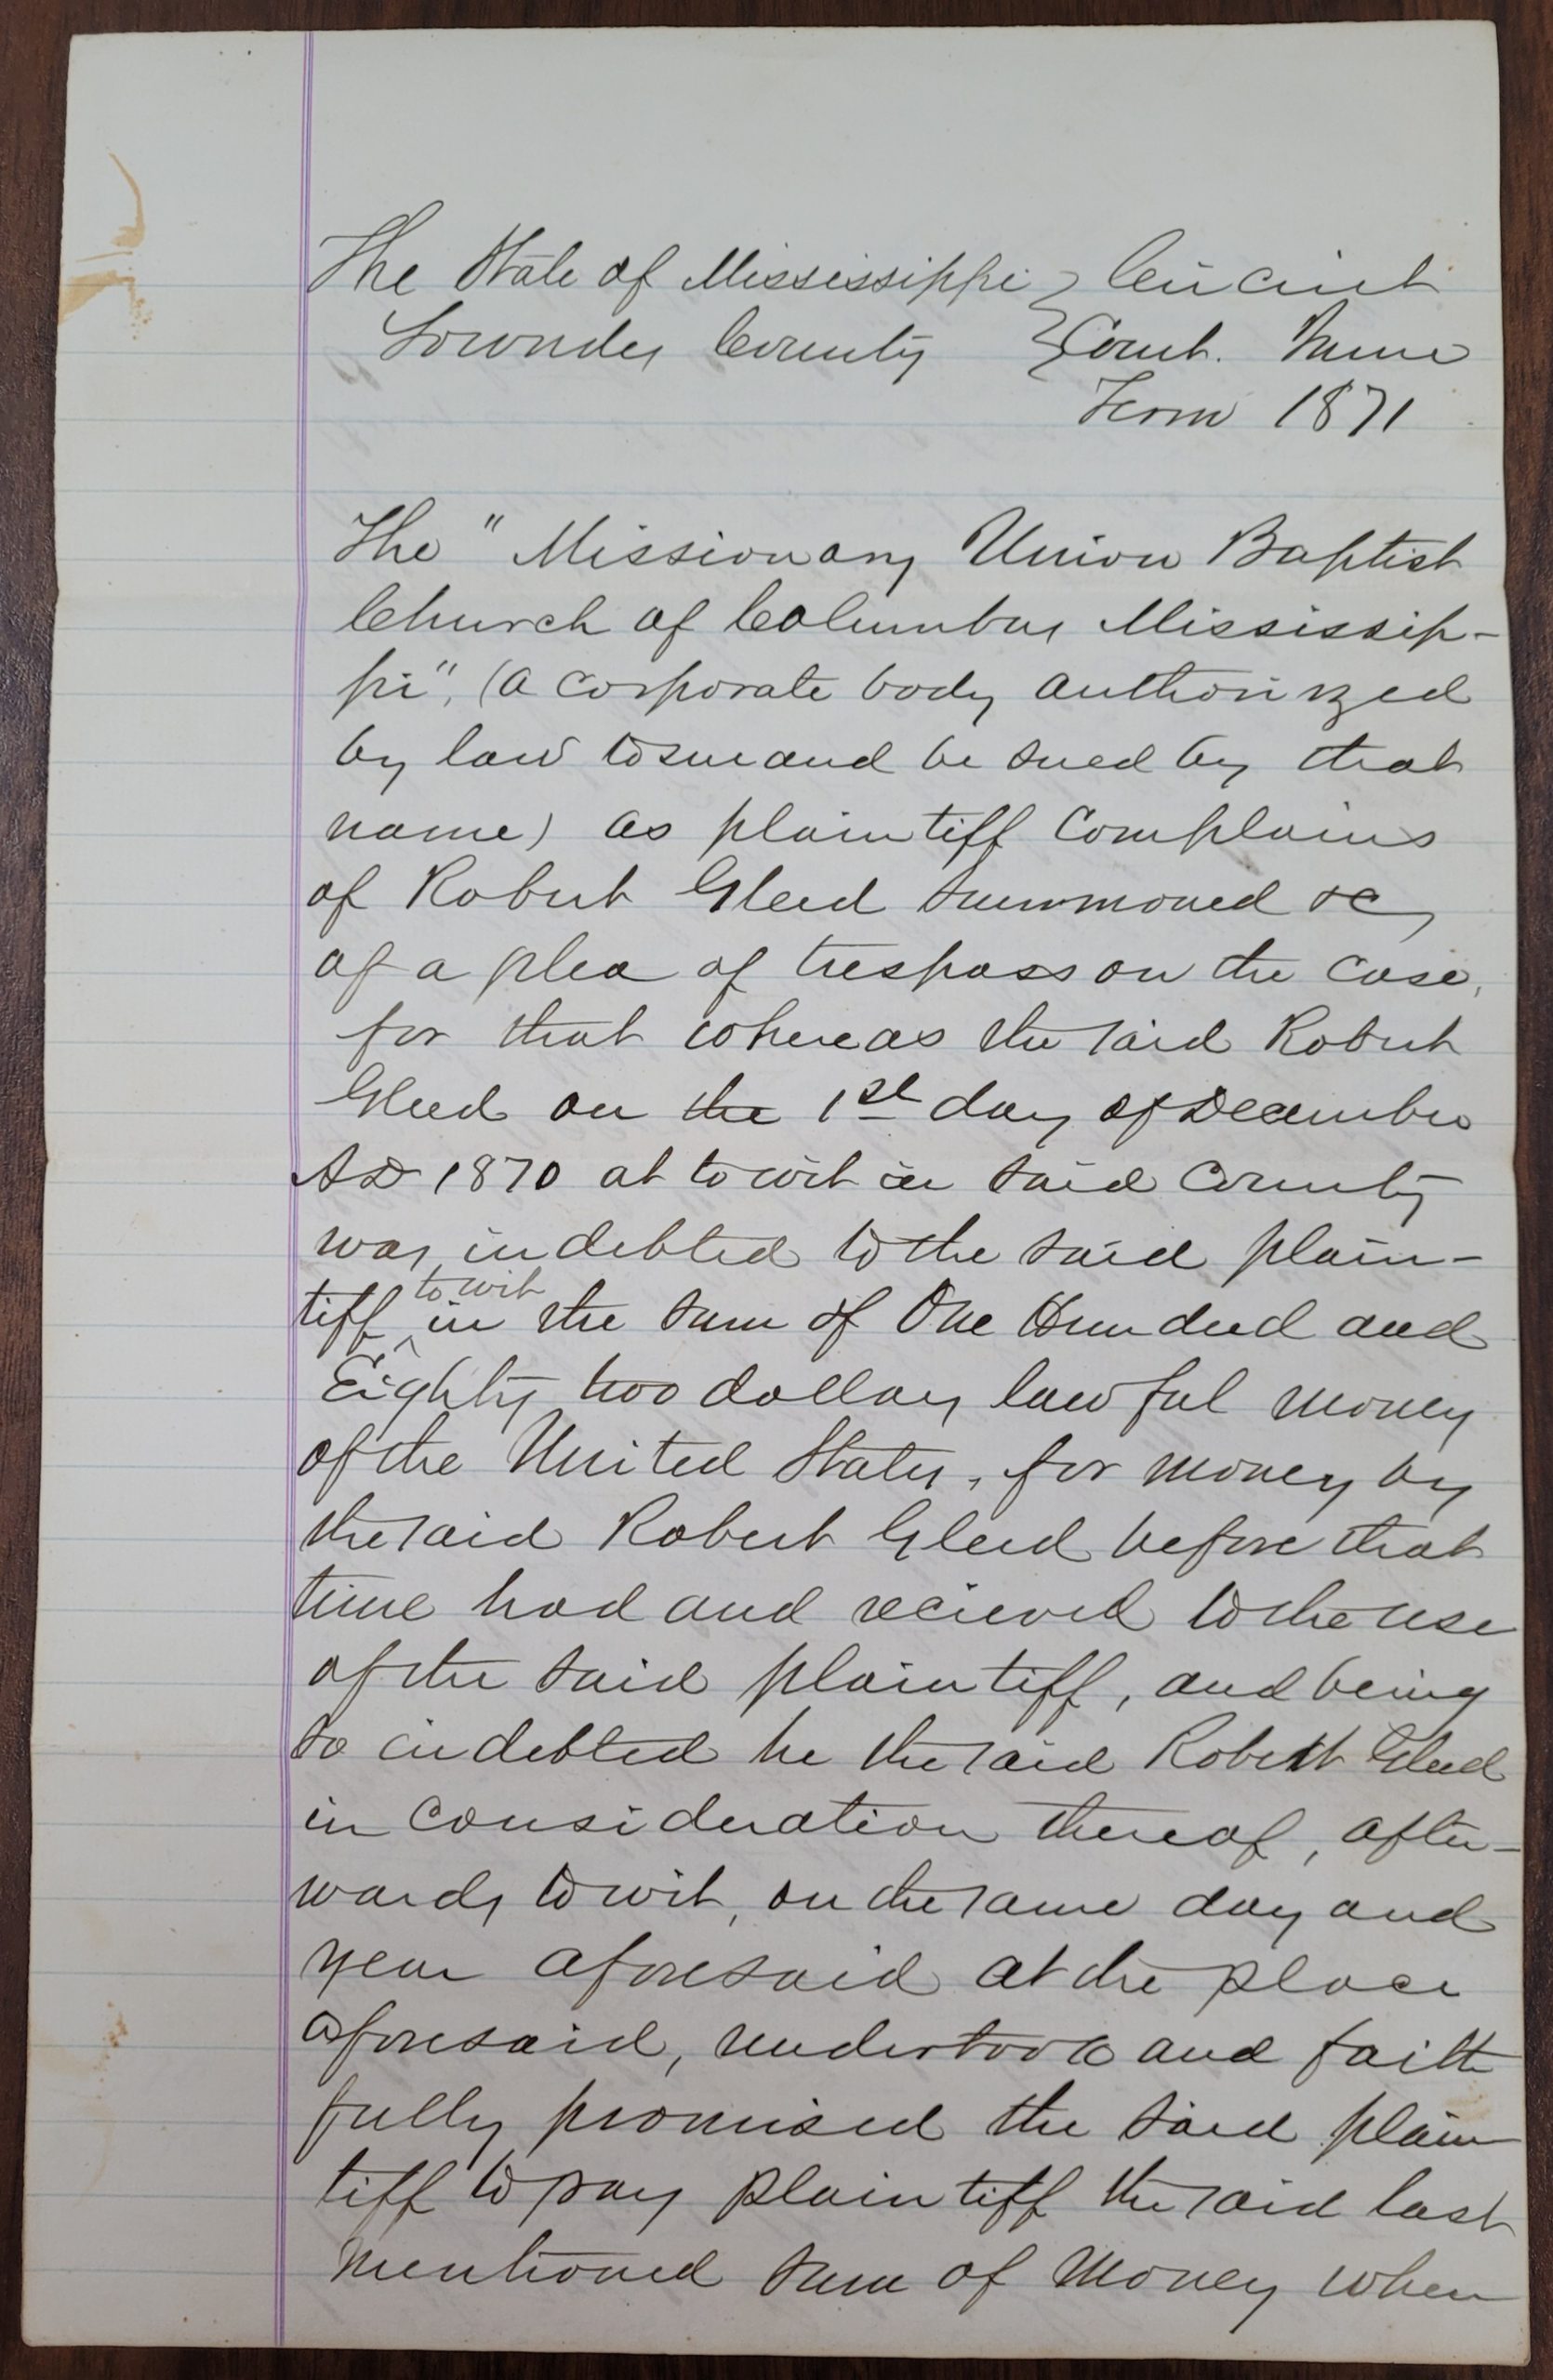 The State of Mississippi } Circuit
Lowndes County } Court. June
Term 1871
The "Missionary Union Baptist
Church of Columbus Mississip-
pi", (a corporate body authorized
by law to sue and be sued by that
name) as plaintiff complains
of Robert Gleed summoned &c
of a plea of trespass on the case,
for that whereas the said Robert
Gleed on the 1st day of December
AD 1870 at to wit in said County
was indebted to the said plain-
tiff ^to wit in the sum of One Hundred and
Eighty two dollars lawful money
of the United States, for money by
the said Robert Gleed before that
time had and recieved to the use
of the said plaintiff, and being
so indebted he the said Robert Gleed
in consideration thereof, after-
wards to wit, on the same day and
year aforesaid at the place
aforesaid, undertook and faith
fully promised the said plain
tiff to pay plaintiff the said last
mentioned sum of money when